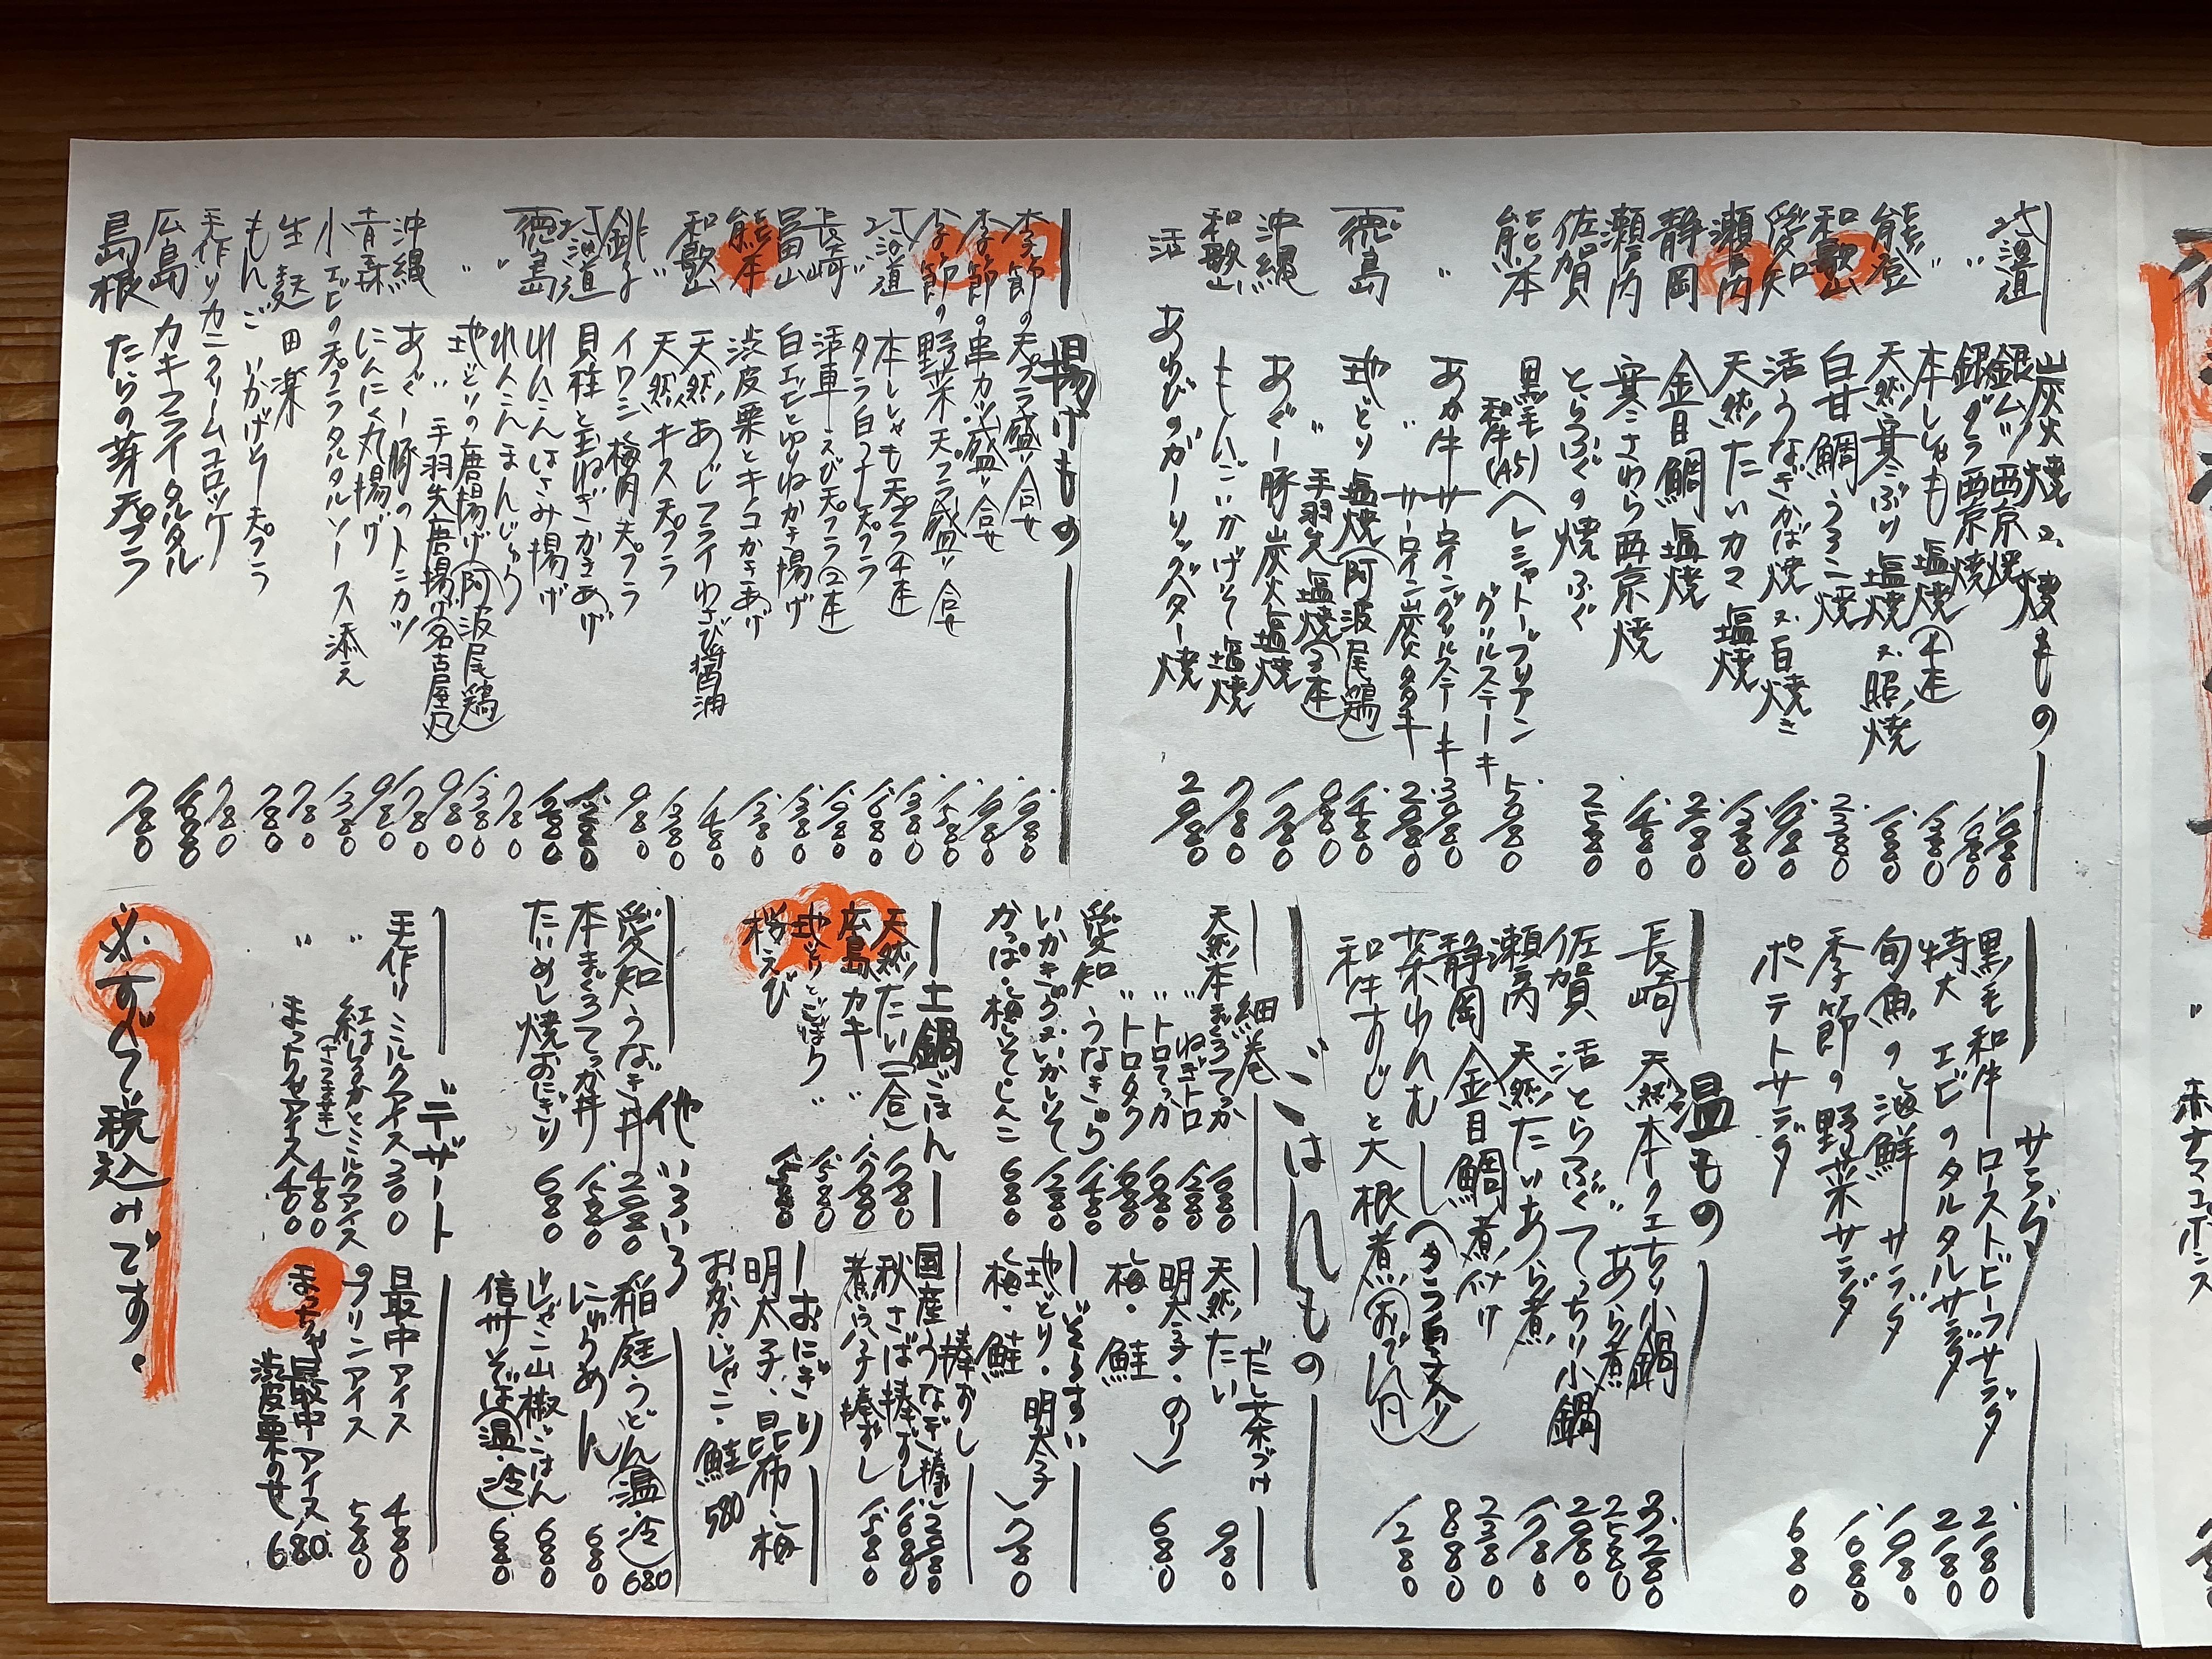 炭火焼& 焼もの
北海道 銀ムツ西京焼 1.680
〃 銀ダラ西京焼 1.680
〃 本ししゃも塩焼(4本) 1.380
能登 天然寒ぶり塩焼又照焼 1.680
和歌山 白甘鯛うろこ焼 2.380
愛知 活うなぎかば焼又白焼き
瀬戸内 天然たいカマ塩焼 1.380
静岡 金目鯛塩焼
瀬戸内 寒さわら西京焼 1.480
佐賀 とらふぐの焼ふぐ 2.580
熊本 黒毛和牛(A5)ヘレシャトーブリアングリルステーキ 5.080
〃 あか牛サーロイングリルステーキ 3.080
〃 サーロイン炭タタキ 2.080
徳島 地どり塩焼(阿波尾鶏) 1.480
〃 手羽先塩焼(3本) 980
沖縄 あぐー豚炭火塩焼 1.780
和歌山 もんごいかげそ塩焼 780
活 あわびのガーリックバター焼 2.980
揚げもの
季節の天プラ盛り合せ 1.980
季節の串カツ盛り合せ 1.980
季節の野菜天プラ盛り合せ 1.580
北海道 本ししゃも天プラ(4本) 1.380
〃 タラ白子天プラ 1.680
長崎 活車えび天プラ(2本) 1.980
富山 白エビとゆりねかき揚げ 1.380
熊本 渋皮栗とキノコかきあげ 1.380
和歌山 天然あじフライわさび醤油 1.480
〃 天然キス天プラ 1.380
銚子 イワシ梅肉天プラ 980
北海道 貝柱と玉ねぎかきあげ
徳島 れんこんはさみ揚げ 1.280
〃 れんこんまんじゅう 780
〃 地どりの唐揚げ(阿波尾鶏) 1.380
〃 手羽先唐揚げ(名古屋風) 980
沖縄 あぐー豚のトンカツ 1.780
青森 にんにく丸揚げ 980
小エビの天プラタルタルソース添え 1.380
生麩田楽 780
もんごいかげそ天プラ 780
手作りカニクリームコロッケ 780
広島 カキフライタルタル 1.680
島根 たらの芽天プラ 780
サラダ
黒毛和牛ローストビーフサラダ 2.180
特大エビのタルタルサラダ 2.180
旬魚の海鮮サラダ 1.980
季節の野菜サラダ 1.080
ポテトサラダ 680
温もの
長崎 天然本クエちり小鍋 3.280
〃 あら煮 2.580
佐賀 活とらふぐてっちり小鍋 2.980
瀬戸内 天然たいあら煮 1.780
静岡 金目鯛煮付け 2.380
茶わんむし(タラ白子入り) 880
和牛すじと大根煮(おでん風) 1.280
ごはんもの
細巻
天然本まぐろてっか 1.680
〃 ねぎトロ 1.280
〃 トロてっか 1.680
〃 トロタク 1.680
愛知 うなきゅう 1.480
いかきゅう又いかしそ 1.280
かっぱ・梅しそ・しんこ 680
だし茶づけ
天然たい 980
明太子・のり
梅・鮭 680
ぞうすい
地どり・明太子
梅・鮭 780
土鍋ごはん
天然たい(一合) 1.780
広島カキ 〃 1.780
地どりとごぼう 〃 1.580
桜えび
棒ずし
国産うなぎ棒ずし 2.080
秋さば棒ずし 1.680
煮穴子棒ずし 1.580
おにぎり
明太子・昆布・梅
おかか・じゃこ・鮭 580
他いろいろ
愛知うなぎ丼 2.080
本まぐろてっか丼
たいめし焼おにぎり 680
稲庭うどん(温・冷) 680
にゅうめん 680
じゃこ山椒ごはん 680
信州そば(温・冷) 680
デザート
手作りミルクアイス 300
〃 紅はるかとミルクアイス(さつま芋) 480
〃 まっちゃアイス 400
最中アイス 480
プリンアイス 580
まっちゃ最中アイス渋皮栗のせ 680
※すべて税込みです。
赤ナマコポンズ